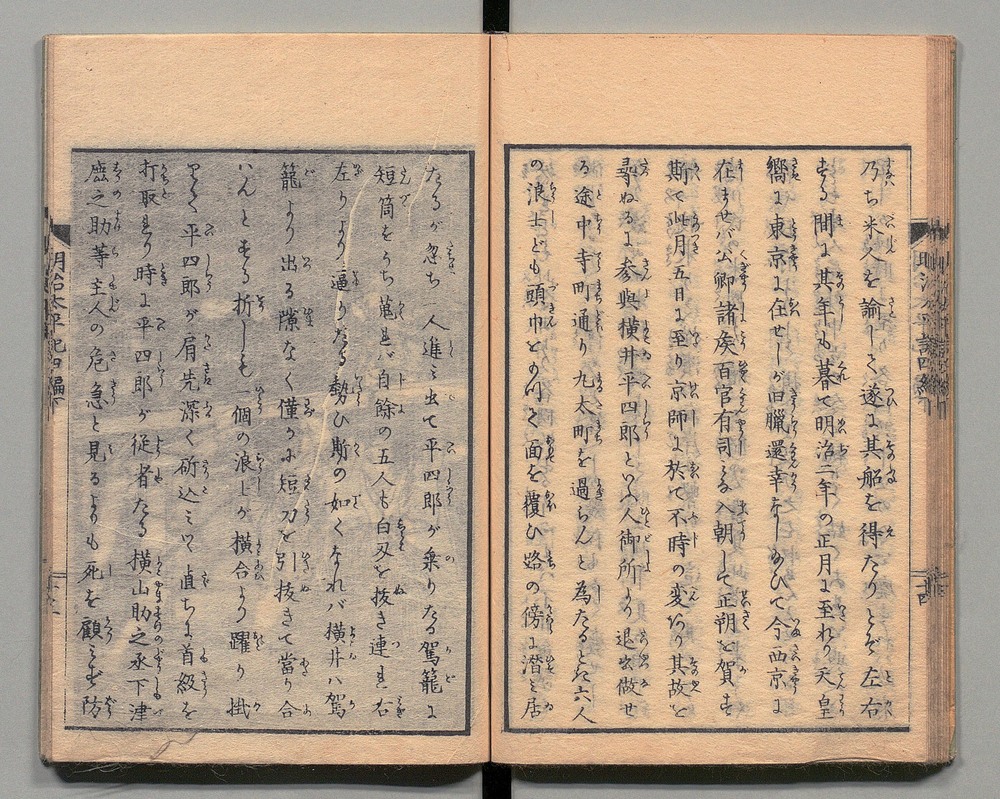 乃ち米人を諭して遂に其船を得たりとぞ左右
する間に其年も暮て明治二年の正月に至れり天皇
嚮に東京に在せしが旧臘還幸なし給ひて今西京に
在ませバ公卿諸矦百官有司みな入朝して正朔を賀す
斯て此月五日に至り京師に於て不時の変あり其故を
尋ぬるに参與横井平四郎といふ人御所より退出做せ
る途中寺町通り九太町を過らんと為たるとき六人
の浪士ども頭巾をもつて面を覆ひ路の傍に潜み居
たるが忽ち一人進み出て平四郎が乗りたる駕籠に
短筒をうち蒐れバ自餘の五人も白刃を抜き連れ右
左りより逼りたる勢ひ斯の如くなれバ横井ハ駕
籠より出る隙なく僅かに短刀を引抜きて當り合
いんとする折しも一個の浪士が横合より躍り掛
りて平四郎が肩先深く斫込みつゝ直ちに首級を
打取れり時に平四郎が従者たる横山助之丞下津
鹿之助等主人の危急と見るよりも死を顧みず防
明治太平記四編下